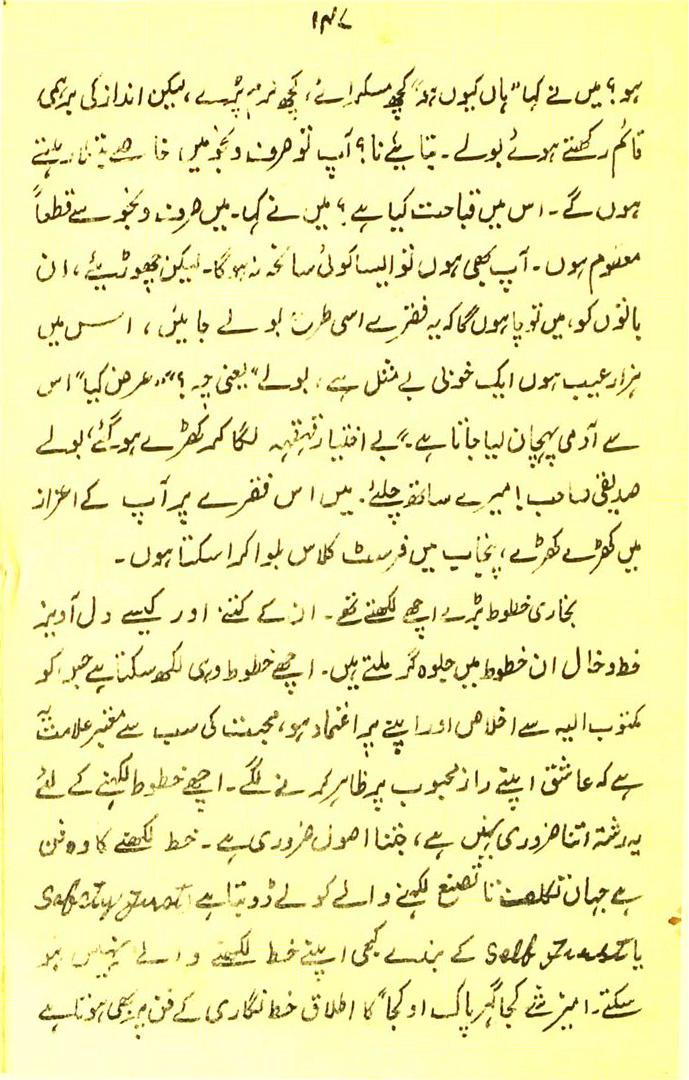 ۱۴۷
ہو؟ میں نے کہا "ہاں کیوں نہ ہو" کچھ مسکرائے، کچھ نرم پڑے، لیکن انداز کی برہمی
قائم رکھتے ہوئے بولے۔ بتایئے نا؟ آپ تو صرف و نحو میں خاصے رہتے
ہوں گے۔ اس میں قباحت کیا ہے؟ میں نے کہا۔ میں صرف و نحو سے قطعاً
معصوم ہوں۔ آپ بھی ہوں تو ایسا کوئی سانحہ نہ ہوگا۔ لیکن چھوڑیئے، ان
باتوں کو، میں تو چاہوں گا کہ یہ فقرے اسی طرح بولے جائیں، اس میں
ہزار عیب ہوں ایک خوبی بے مثل ہے، بولے "یعنی چہ؟" عرض کیا "اس
سے آدمی پہچان لیا جاتا ہے۔" بے اختیار قہقہہ لگا کر کھڑے ہو گئے، بولے
صدیقی صاحب! میرے ساتھ چلئے۔ میں اس فقرے پر آپ کے اعزاز
میں کھڑے کھڑے، پنجاب میں فرسٹ کلاس بلوا کرا سکتا ہوں۔
بخاری خطوط بڑے اچھے لکھتے تھے۔ ان کے کتنے اور کیسے دل آویز
خط و خال ان خطوط میں جلوہ گر ملتے ہیں۔ اچھے خطوط وہی لکھ سکتا ہے جس کو
مکتوب الیہ سے اخلاص اور اپنے پر اعتماد ہو، محبت کی سب سے معتبر علامت یہ
ہے کہ عاشق اپنے راز محبوب پر ظاہر کرنے لگے۔ اچھے خطوط لکھنے کے لئے
یہ رشتہ اتنا ضروری نہیں ہے، جتنا اصول ضروری ہے۔ خط لکھنے کا وہ فن
ہے جہاں تکلف تا تصنع لکھنے والے کو لے ڈوبتا ہے Safety Just
یا Self Just کے بندے کبھی اپنے خط لکھنے والے نہیں ہو
سکتے۔ امیزشے کجا گہر پاک او کجا" کا اطلاق خط نگاری کے فن پر بھی ہوتا ہے